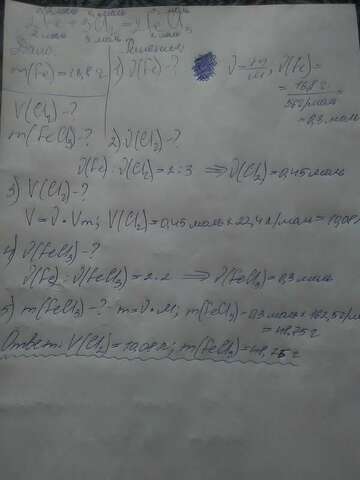 2Fe + 3Cl₂ = 2FeCl₃
2 моль 3 моль 2 моль
Дано: Решение:
m(Fe) = 16,8 г 1) ν(Fe) - ? ν = m/M, ν(Fe) =
= 16,8 г / 56 г/моль
= 0,3 моль
V(Cl₂) - ?
m(FeCl₃) - ? 2) ν(Cl₂) - ?
ν(Fe) : ν(Cl₂) = 2 : 3 ⇒ ν(Cl₂) = 0,45 моль
3) V(Cl₂) - ?
V = ν · Vm; V(Cl₂) = 0,45 моль × 22,4 л/моль = 10,08 л
4) ν(FeCl₃) - ?
ν(Fe) : ν(FeCl₃) = 2 : 2 ⇒ ν(FeCl₃) = 0,3 моль
5) m(FeCl₃) - ? m = ν · M; m(FeCl₃) = 0,3 моль × 162,5 г/моль
= 48,75 г
Ответ: V(Cl₂) = 10,08 л; m(FeCl₃) = 48,75 г